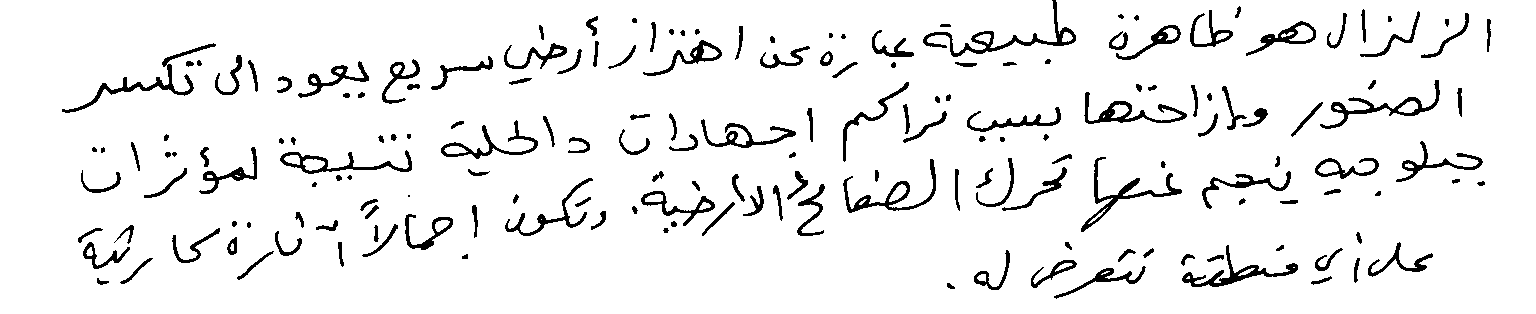 الزلزال هو ظاهرة طبيعية عبارة عن اهتزاز أرضي سريع يعود الى تكسر
الصخور وإزاحتها بسبب تراكم اجهادات داخلية نتيجة لمؤثرات
جيلوجيه ينجم عنها تحرك الصفائح الارضية. وتكون اجمالاً اثارة كارثية
على أي منطقة تتعرض له.